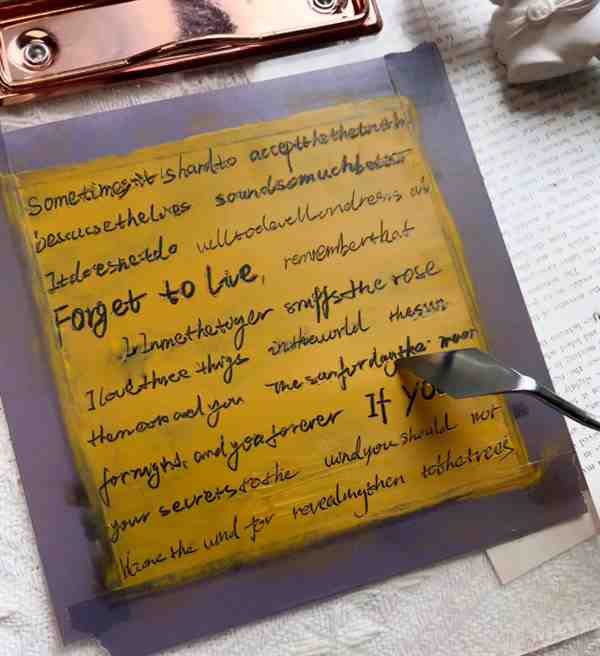 Sometimes it is hard to accept the the truth
because the lies sound so much better
It does not do well to dwell on dreams
Forget to live, remember that
In me the tiger sniffs the rose
I love three things in the world the sun
the moon and you The sun for day the moon
for night, and you forever If yo
your secrets to the wind you should not
blame the wind for revealing then to the trees